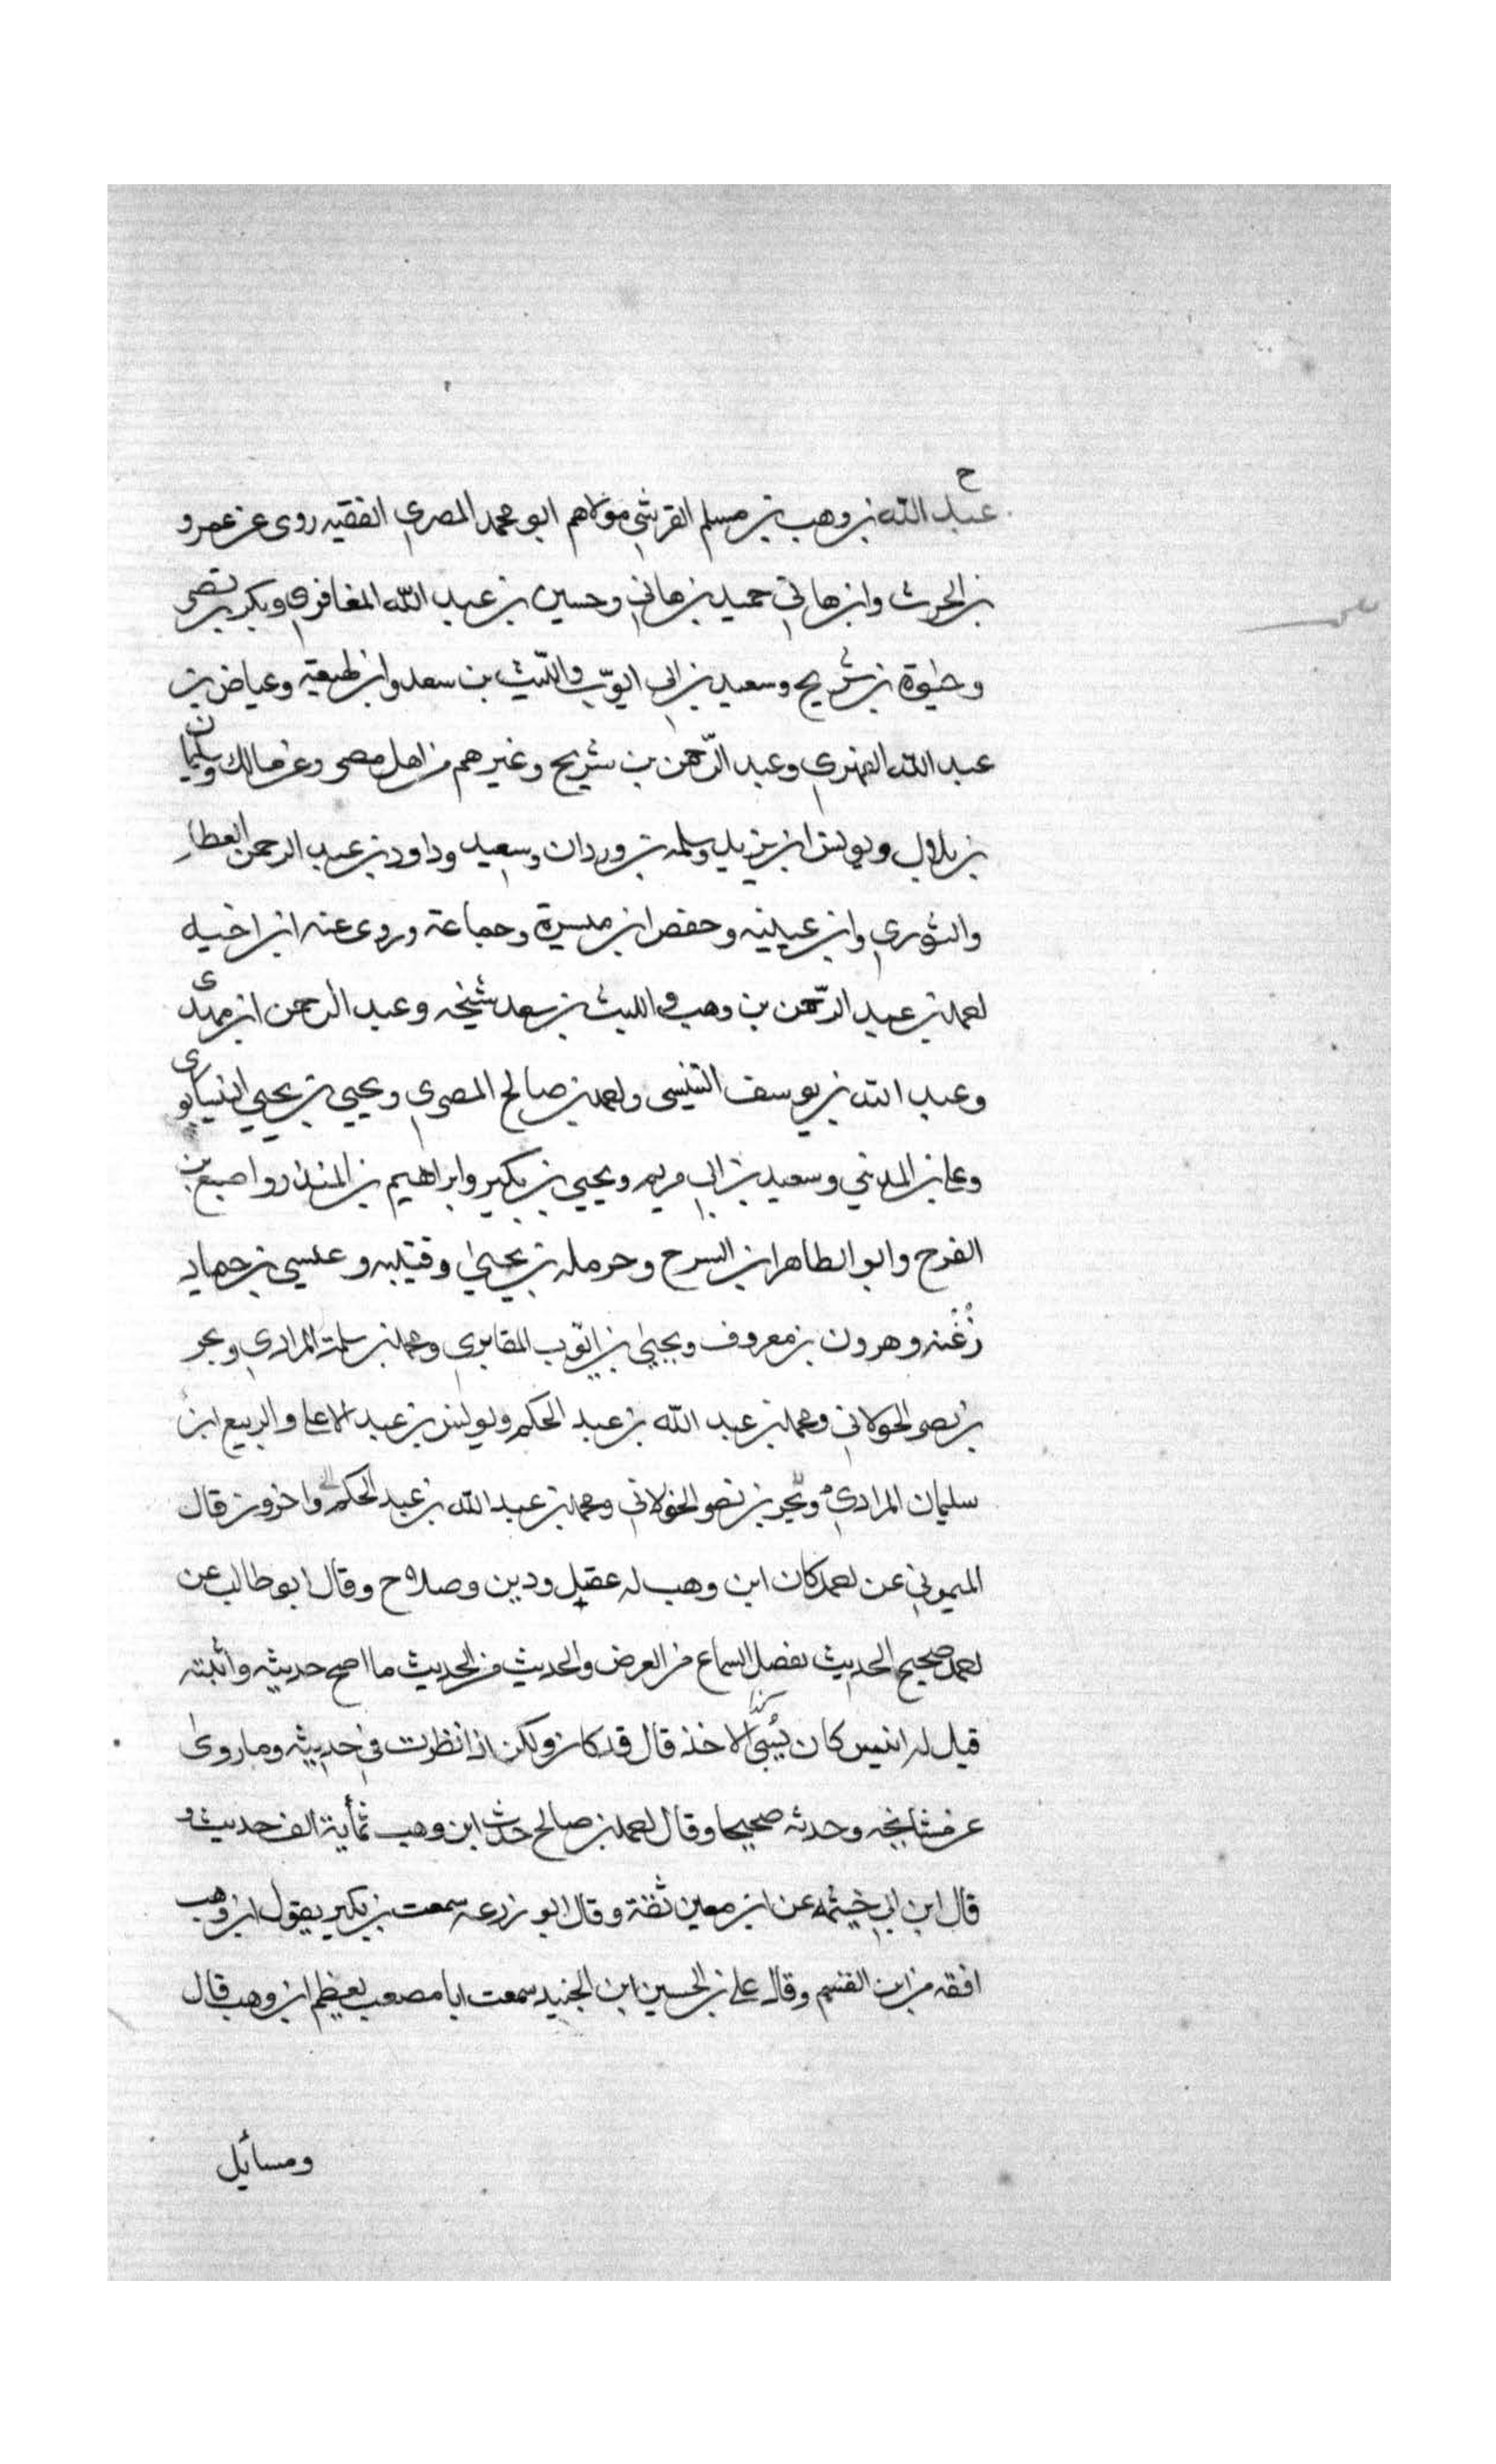 ح
عبد الله بن وهب بن مسلم القرشي مولاهم ابو محمد المصري الفقيه روى عن عمرو
بن الحرث وابن هاني حميد بن هاني وحسين بن عبد الله المغافري وبكر بن نصر
وحيوة بن شريح وسعيد بن ابي ايوب والليث بن سعد وابن لهيعة وعياض بن
عبد الله الفهري وعبد الرحمن بن شريح وغيرهم من اهل مصر وعن مالك وسليمان
بن بلال ويونس ابن يزيد وسلمه بن وردان وسعيد وداود بن عبد الرحمن العطار
والثوري وابن عيينه وحفص ابن ميسرة وجماعة وروى عنه ابن اخيه
احمد بن عبد الرحمن بن وهب والليث بن سعد شيخه وعبد الرحمن ابن مهدى
وعبد الله بن يوسف التنيسى واحمد بن صالح المصري ويحيي بن يحيي النيسابورى
وعلي بن المديني وسعيد بن ابي مريم ويحيي بن بكير وابراهيم بن المنذر واصبغ بن
الفرح وابو الطاهر ابن السرح وحرمله بن يحيى وقتيبه وعيسي بن حماد
زُغْبه وهرون بن معروف ويحيى بن ايّوب المقابري ومحمد بن سلمة المرادي وبحر
بن نصر الخولاني ومحمد بن عبد الله بن عبد الحكم ويونس بن عبد الاعلى والربيع ابن
سليمان المرادي وبحر بن نصر الخولاني ومحمد بن عبد الله بن عبد الحكم واخرون قال
الميموني عن احمد كان ابن وهب له عقل ودين وصلاح وقال ابو طالب عن
احمد صحيح الحديث يفصل السماع من العرض والحديث من الحديث ما اصح حديثه واثبته
قيل له اليس كان يُسيّ الاخذ قال قد كان ولكن اذا نظرت في حديثه وما روى
عن مشايخه وجدته صحيحا وقال احمد بن صالح حدث ابن وهب بمأية الف حديث و
قال ابن ابي خيثمه عن ابن معين ثقة وقال ابو زرعه سمعت بن بكير يقول ابن وهب
افقه من ابن القسم وقال علي بن الحسين ابن الجنيد سمعت ابا مصعب يعظم ابن وهب قال
ومسائل